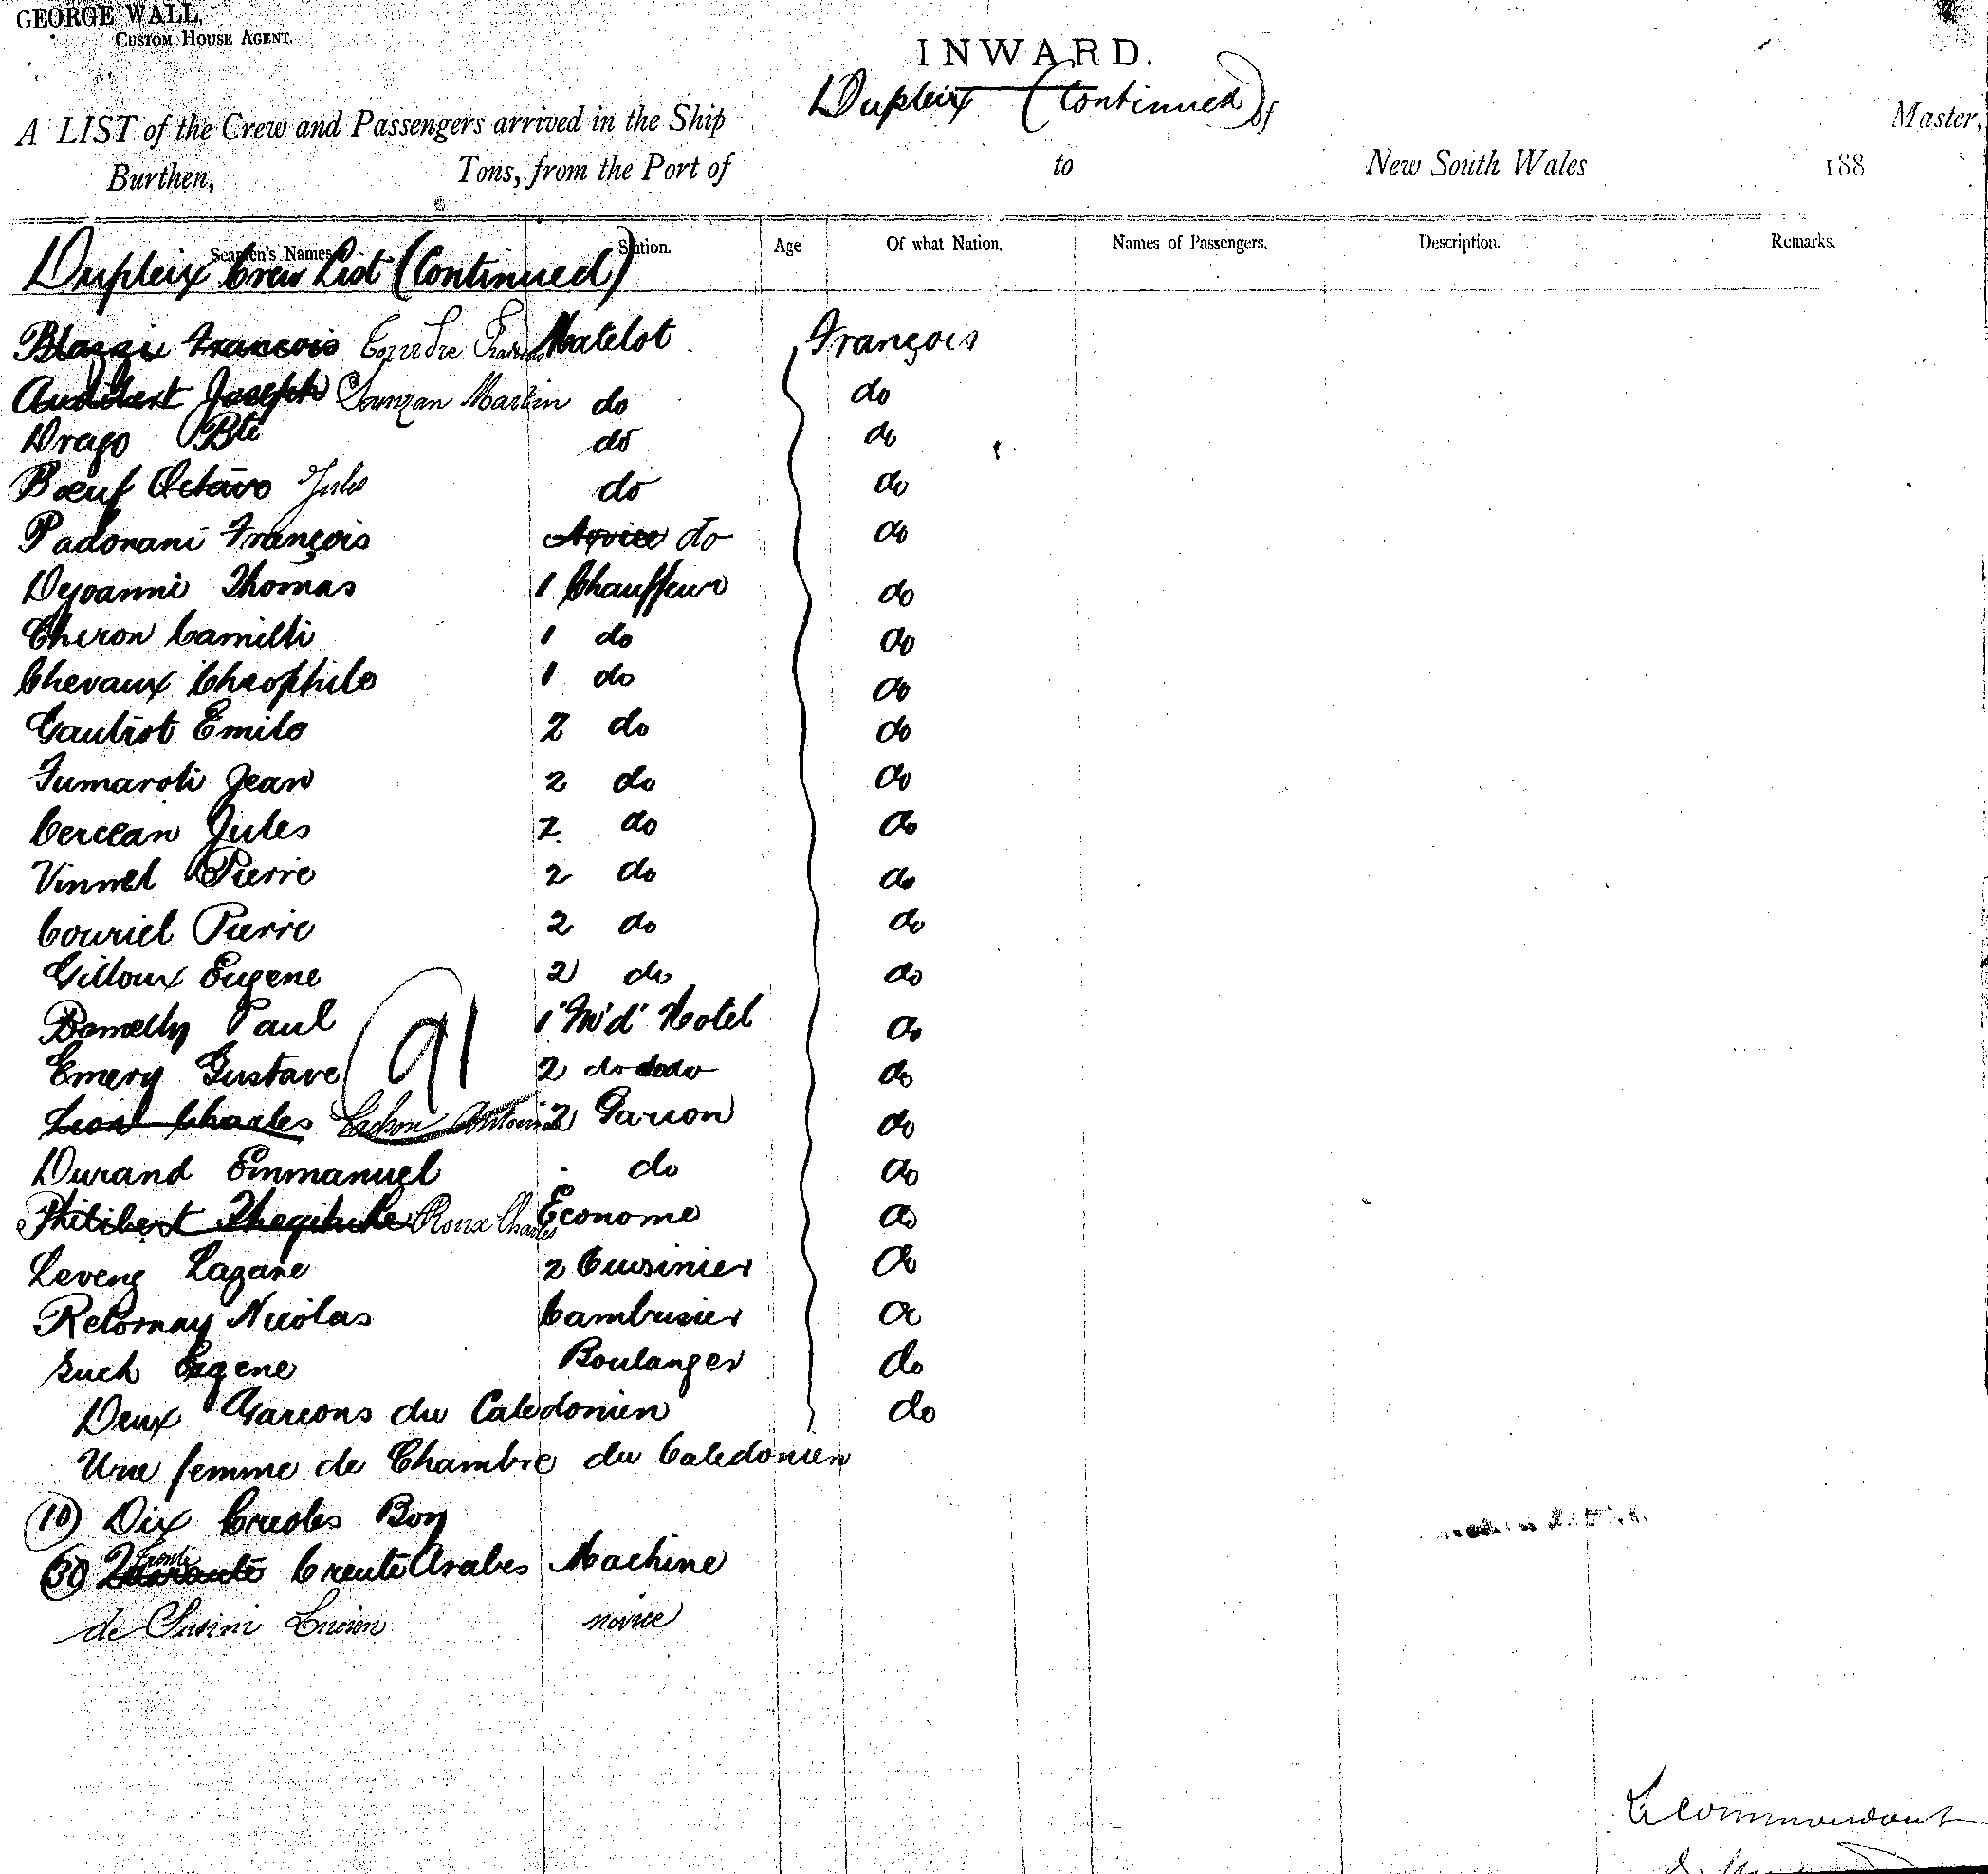 GEORGE WALL,
CUSTOM HOUSE AGENT.
INWARD.
Dupleix (Continued)
A LIST of the Crew and Passengers arrived in the Ship of Master,
Burthen, Tons, from the Port of to New South Wales 188
Seamen's Names. Station. Age Of what Nation. Names of Passengers. Description. Remarks.
Dupleix Crew List (Continued)
François Matelot François
Audibert Joseph Martin do do
Drago Bte do do
Bœuf Octavo Jules do do
Padorani François Novice do do
Dejoanni Thomas 1 Chauffeur do
Cheron Camilli 1 do do
Chevaux Theophile 1 do do
Gautrot Emile 2 do do
Fumaroli Jean 2 do do
Cercean Jules 2 do do
Vinmel Pierre 2 do do
Couriel Pierre 2 do do
Gilloux Eugene 2 do do
Paul 1 M'd' Hotel do
Emery Gustave 2 do dodo do
91
Leon Charles 2 Garcon do
Durand Emmanuel do do
Philibert Roux Charles Econome do
Leveng Lazare 2 Cuisinier do
Retornay Nicolas Cambusier do
Such Eugene Boulanger do
Deux Garcons du Caledonien do
Une femme de Chambre du Caledonien
(10) Dix Creoles Boy
(30) Quarante Trente Creute Arabes Machine
de Susini Lucien novice
Le Commandant